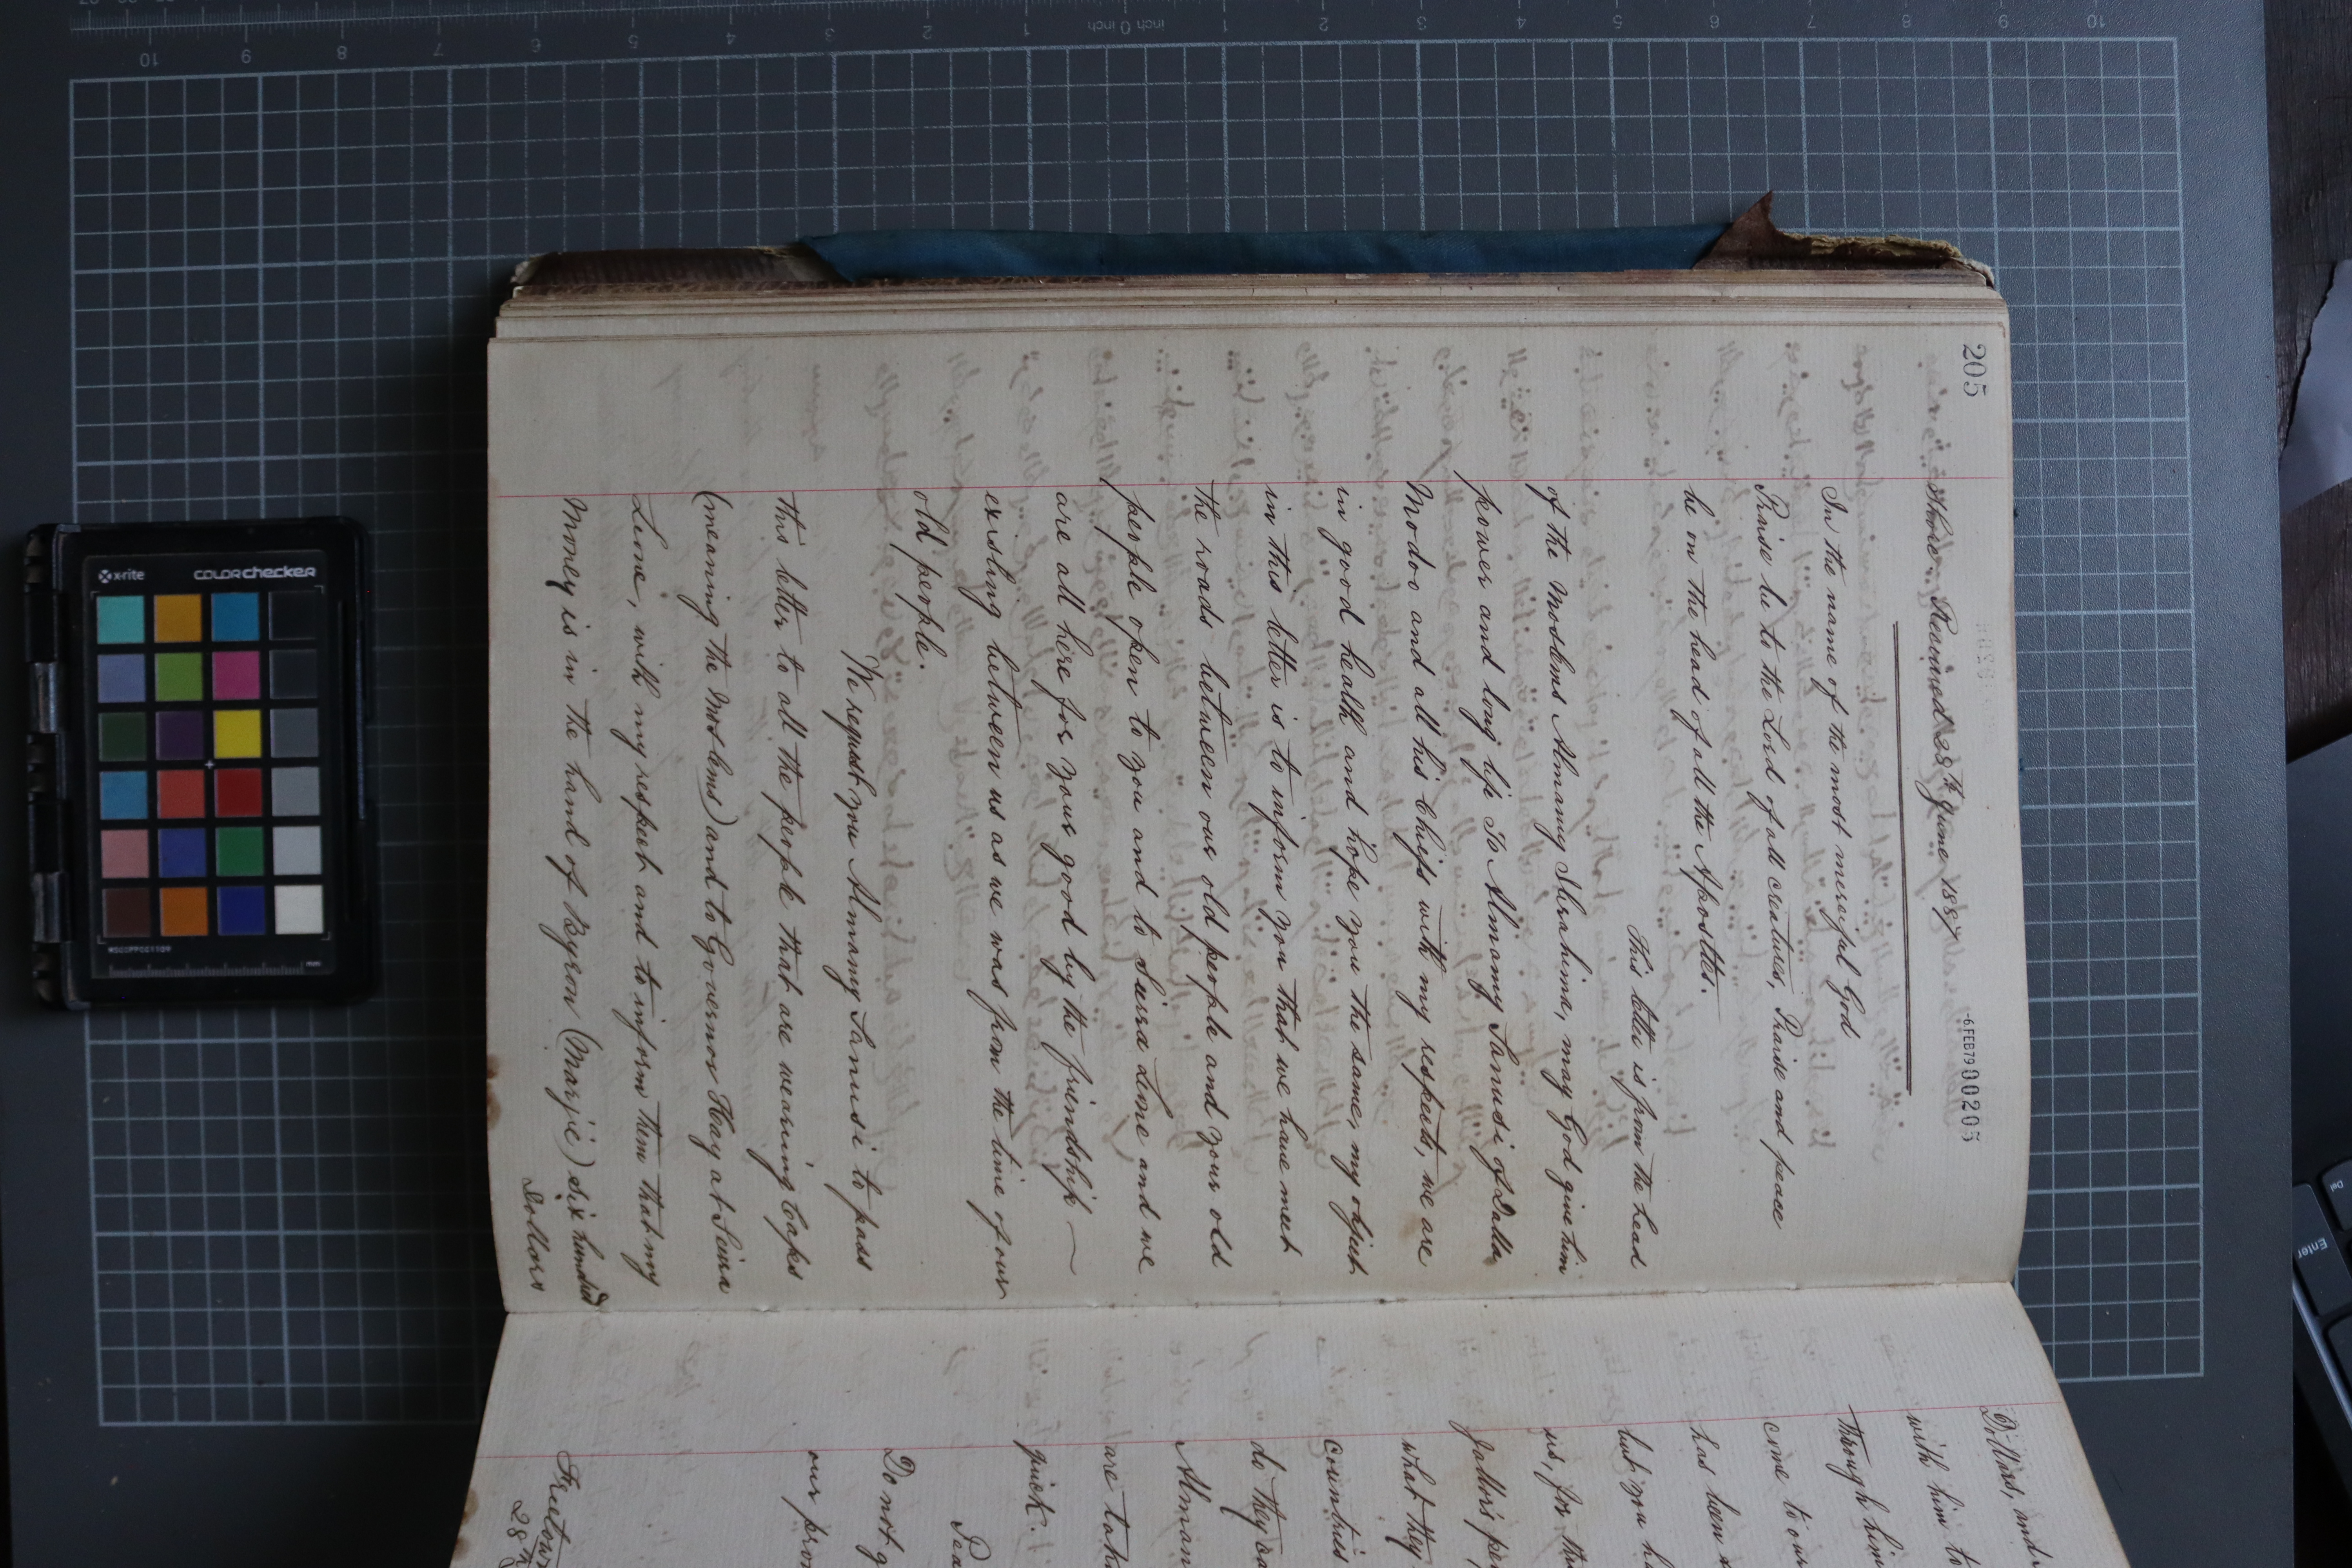 205
-6FEB79 000205
Received 28th June 1887
In the name of the most merciful God
Praise be to the Lord of all creatures, Praise and peace
be on the head of all the Apostles.
This letter is from the head
of the Moslems Almamy Ibrahima, may God give him
power and long life To Almamy Sanusi of Dalla
Modoo and all his Chiefs with my respects, we are
in good health and hope you the same, my object
in this letter is to inform you that we have meet
the roads between our old people and your old
people open to you and to Siera Lione and we
are all here for your good by the friendship —
existing between us as we was from the time of our
old people.
We request you Almamy Sanusi to pass
this letter to all the people that are wearing Caps
(meaning the Moslems) and to Governor Hay at Seira
Leone, with my respect and to inform them that my
Money is in the hand of Byron (Marjie) six hundred
Dollars
Dollars, and
with him to
Through him
come to our
has been
but you
us, for the
what they
countries
do they
Almam
are
quick.
Do not
our
Freetown
28th
x-rite
COLORchecker
mm
inch 0 inch
Enter
Del